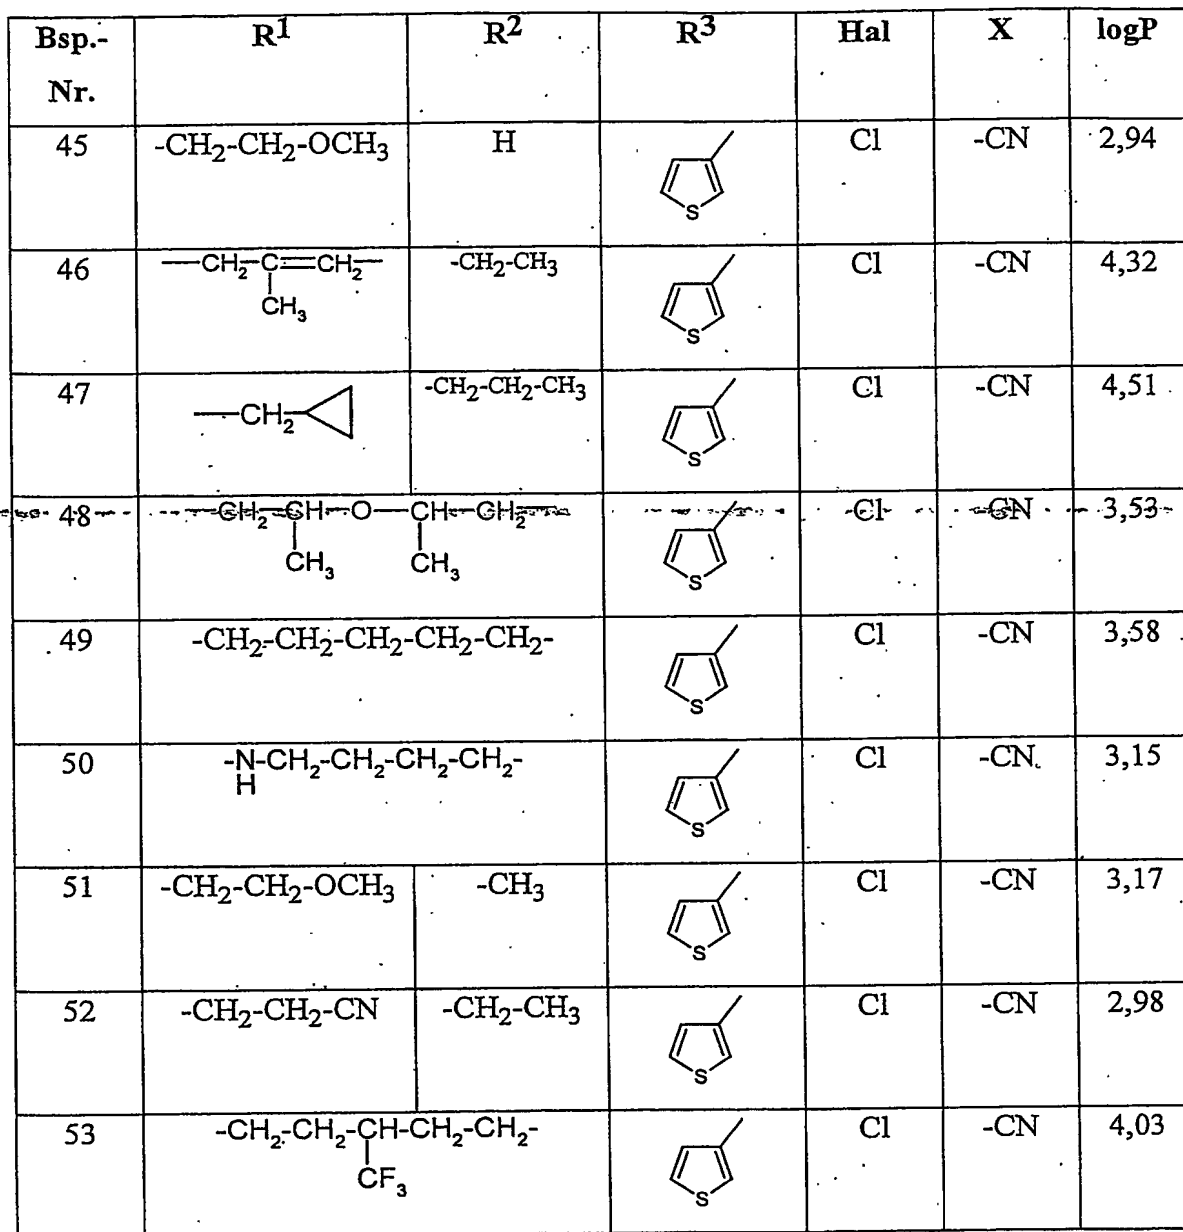 Bsp.- R1 R2 R3 Hal X logP
Nr.
45 -CH2-CH2-OCH3 H S Cl -CN 2,94
46 —CH2-C=CH2— -CH2-CH3 S Cl -CN 4,32
CH3
47 —CH2 -CH2-CH2-CH3 S Cl -CN 4,51
48 —CH2-CH-O-CH-CH2— S Cl -CN 3,53
CH3 CH3
49 -CH2-CH2-CH2-CH2-CH2- S Cl -CN 3,58
50 -N-CH2-CH2-CH2-CH2- S Cl -CN 3,15
H
51 -CH2-CH2-OCH3 -CH3 S Cl -CN 3,17
52 -CH2-CH2-CN -CH2-CH3 S Cl -CN 2,98
53 -CH2-CH2-CH-CH2-CH2- S Cl -CN 4,03
CF3